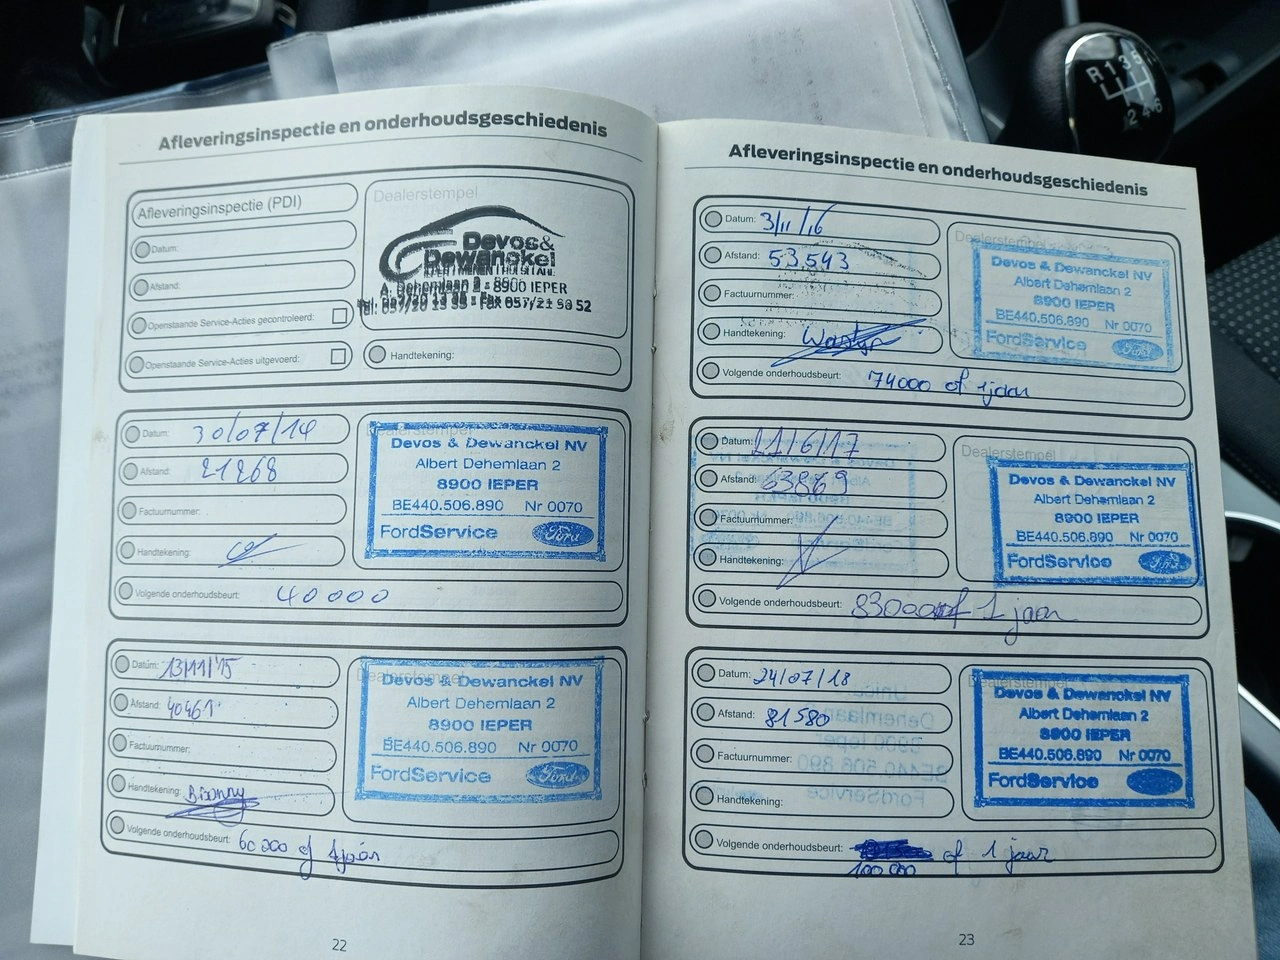 Afleveringsinspectie en onderhoudsgeschiedenis
Afleveringsinspectie (PDI)
Datum:
Afstand:
Openstaande Service-Acties gecontroleerd:
Openstaande Service-Acties uitgevoerd:
Dealerstempel
Devos &
Dewanckel
A. Dehemlaan 2 - 8900 IEPER
Handtekening:
Datum: 30/07/14
Afstand: 21268
Factuurnummer:
Handtekening:
Volgende onderhoudsbeurt: 40000
Dealerstempel
Devos & Dewanckel NV
Albert Dehemlaan 2
8900 IEPER
BE440.506.890 Nr 0070
FordService Ford
Datum: 13/11/15
Afstand: 40461
Factuurnummer:
Handtekening:
Volgende onderhoudsbeurt: 60 000 of 1 jaar
Dealerstempel
Devos & Dewanckel NV
Albert Dehemlaan 2
8900 IEPER
BE440.506.890 Nr 0070
FordService Ford
22
Afleveringsinspectie en onderhoudsgeschiedenis
Datum: 3/11/16
Afstand: 53543
Factuurnummer:
Handtekening:
Volgende onderhoudsbeurt: 74000 of 1 jaar
Dealerstempel
Devos & Dewanckel NV
Albert Dehemlaan 2
8900 IEPER
BE440.506.890 Nr 0070
FordService Ford
Datum: 21/6/17
Afstand:
Factuurnummer:
Handtekening:
Volgende onderhoudsbeurt: 83000 of 1 jaar
Dealerstempel
Devos & Dewanckel NV
Albert Dehemlaan 2
8900 IEPER
BE440.506.890 Nr 0070
FordService Ford
Datum: 24/07/18
Afstand: 81580
Factuurnummer:
Handtekening:
Volgende onderhoudsbeurt: of 1 jaar
100 000
Dealerstempel
Devos & Dewanckel NV
Albert Dehemlaan 2
8900 IEPER
BE440.506.890 Nr 0070
FordService
23
R 1 3 5
2 4 6